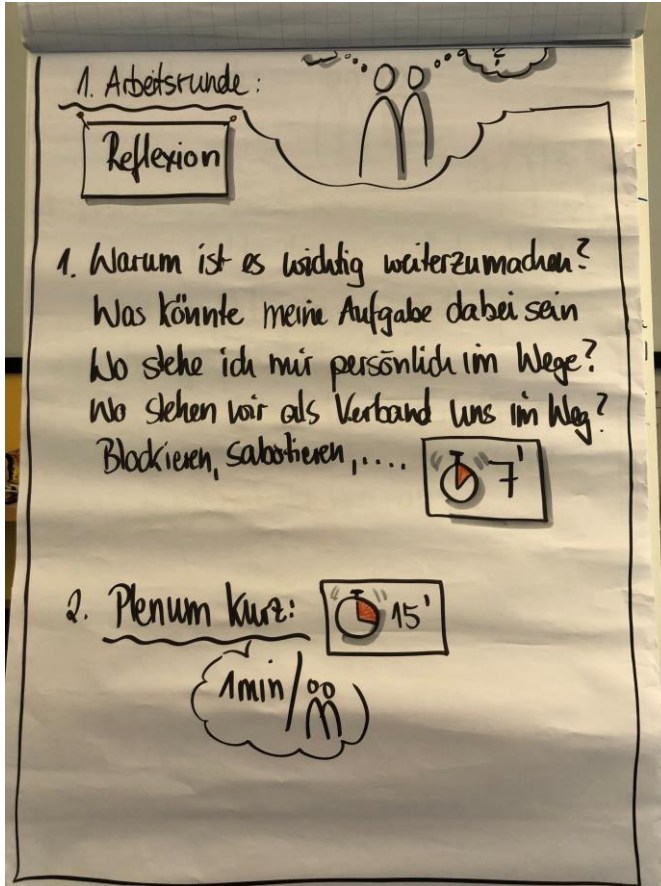 1. Arbeitsrunde:
Reflexion
1. Warum ist es wichtig weiterzumachen?
Was könnte meine Aufgabe dabei sein
Wo stehe ich mir persönlich im Wege?
Wo stehen wir als Verband uns im Weg?
Blockieren, sabotieren,....
7'
2. Plenum kurz:
15'
1min/